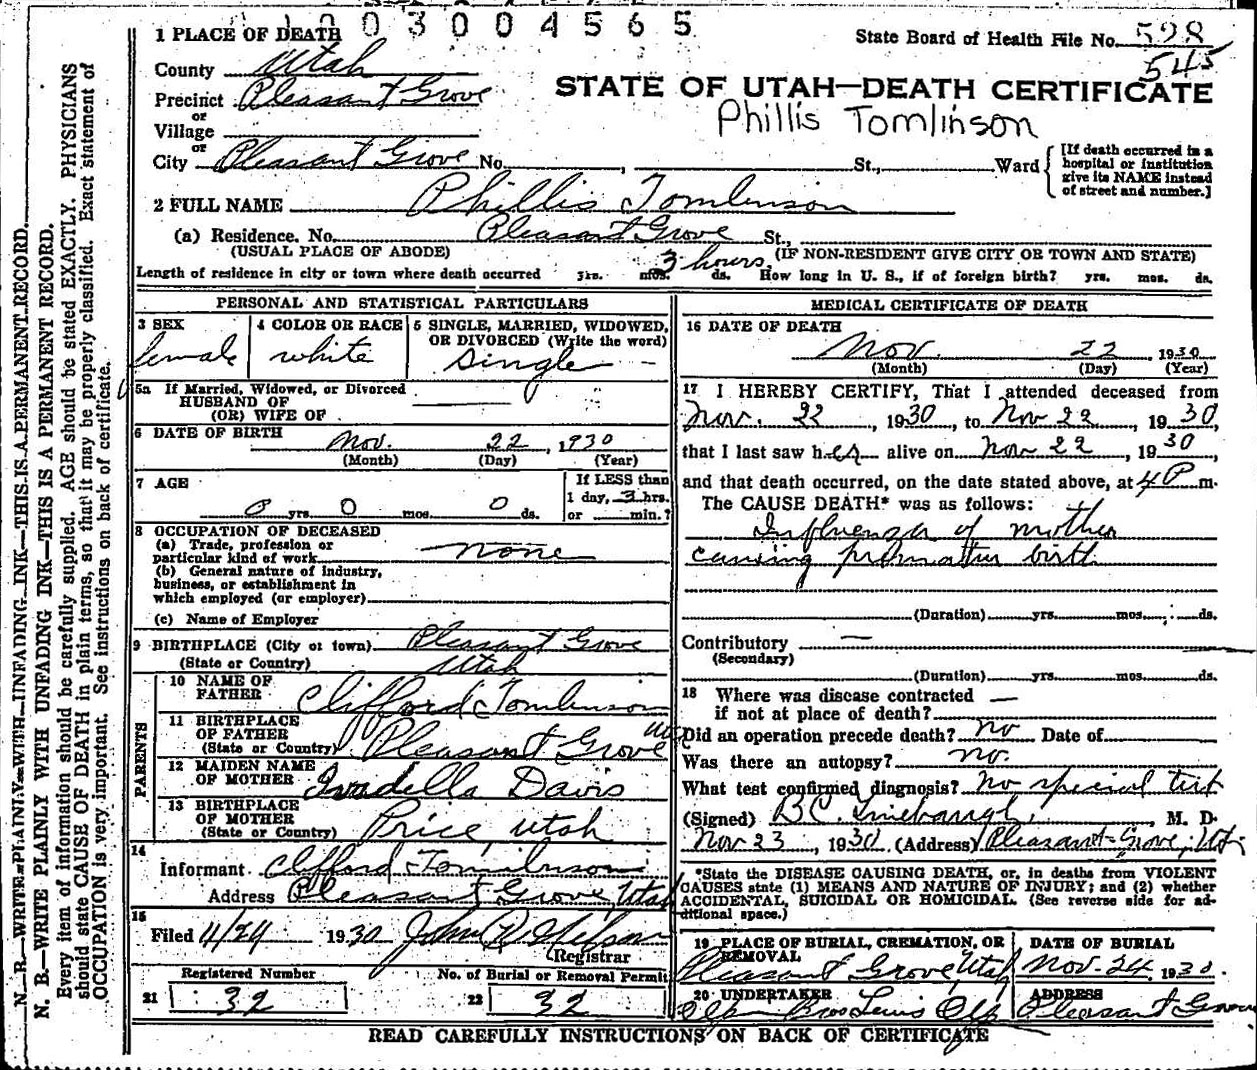 003004565
1 PLACE OF DEATH
State Board of Health File No. 528
545
County Utah
STATE OF UTAH—DEATH CERTIFICATE
Precinct Pleasant Grove
Phillis Tomlinson
or
Village
or
City Pleasant Grove No. , St., Ward
[If death occurred in a
hospital or institution
give its NAME instead
of street and number.]
2 FULL NAME Phillis Tomlinson
(a) Residence. No. Pleasant Grove St.,
(USUAL PLACE OF ABODE) (IF NON-RESIDENT GIVE CITY OR TOWN AND STATE)
Length of residence in city or town where death occurred yrs. mos. 3 hours ds. How long in U. S., if of foreign birth? yrs. mos. ds.
PERSONAL AND STATISTICAL PARTICULARS
3 SEX
female
4 COLOR OR RACE
white
5 SINGLE, MARRIED, WIDOWED,
OR DIVORCED (Write the word)
single
5a If Married, Widowed, or Divorced
HUSBAND OF
(OR) WIFE OF
6 DATE OF BIRTH Nov. 22, 1930
(Month) (Day) (Year)
7 AGE
0 yrs. 0 mos. 0 ds.
If LESS than
1 day, 3 hrs.
or min.?
8 OCCUPATION OF DECEASED
(a) Trade, profession or
particular kind of work none
(b) General nature of industry,
business, or establishment in
which employed (or employer)
(c) Name of Employer
9 BIRTHPLACE (City or town) Pleasant Grove
(State or Country) Utah
PARENTS
10 NAME OF
FATHER Clifford Tomlinson
11 BIRTHPLACE
OF FATHER
(State or Country) Pleasant Grove
12 MAIDEN NAME
OF MOTHER Ivadella Davis
13 BIRTHPLACE
OF MOTHER
(State or Country) Price, Utah
14
Informant Clifford Tomlinson
Address Pleasant Grove, Utah
15
Filed 11/24 1930
Registrar
Registered Number
21 32
No. of Burial or Removal Permit
22 32
MEDICAL CERTIFICATE OF DEATH
16 DATE OF DEATH
Nov. 22 1930
(Month) (Day) (Year)
17 I HEREBY CERTIFY, That I attended deceased from
Nov. 22, 1930, to Nov 22, 1930,
that I last saw her alive on Nov 22, 1930,
and that death occurred, on the date stated above, at 4 P m.
The CAUSE DEATH* was as follows:
Influenza of mother
causing premature birth
(Duration) yrs. mos. ds.
Contributory —
(Secondary)
(Duration) yrs. mos. ds.
18 Where was disease contracted —
if not at place of death?
Did an operation precede death? no Date of
Was there an autopsy? no.
What test confirmed diagnosis? No special test
(Signed) B.C. Linebaugh, M. D.
Nov 23, 1930 (Address) Pleasant Grove, Ut.
*State the DISEASE CAUSING DEATH, or, in deaths from VIOLENT
CAUSES state (1) MEANS AND NATURE OF INJURY; and (2) whether
ACCIDENTAL, SUICIDAL OR HOMICIDAL. (See reverse side for ad-
ditional space.)
19 PLACE OF BURIAL, CREMATION, OR
REMOVAL
Pleasant Grove, Utah
DATE OF BURIAL
Nov. 24, 1930.
20 UNDERTAKER
Olpin Bros Lewis Olp
ADDRESS
Pleasant Grove
READ CAREFULLY INSTRUCTIONS ON BACK OF CERTIFICATE
N. B.—WRITE PLAINLY WITH UNFADING INK—THIS IS A PERMANENT RECORD.
N. B.—WRITE PLAINLY WITH UNFADING INK—THIS IS A PERMANENT RECORD.
Every item of information should be carefully supplied. AGE should be stated EXACTLY. PHYSICIANS
should state CAUSE OF DEATH in plain terms, so that it may be properly classified. Exact statement of
OCCUPATION is very important. See instructions on back of certificate.